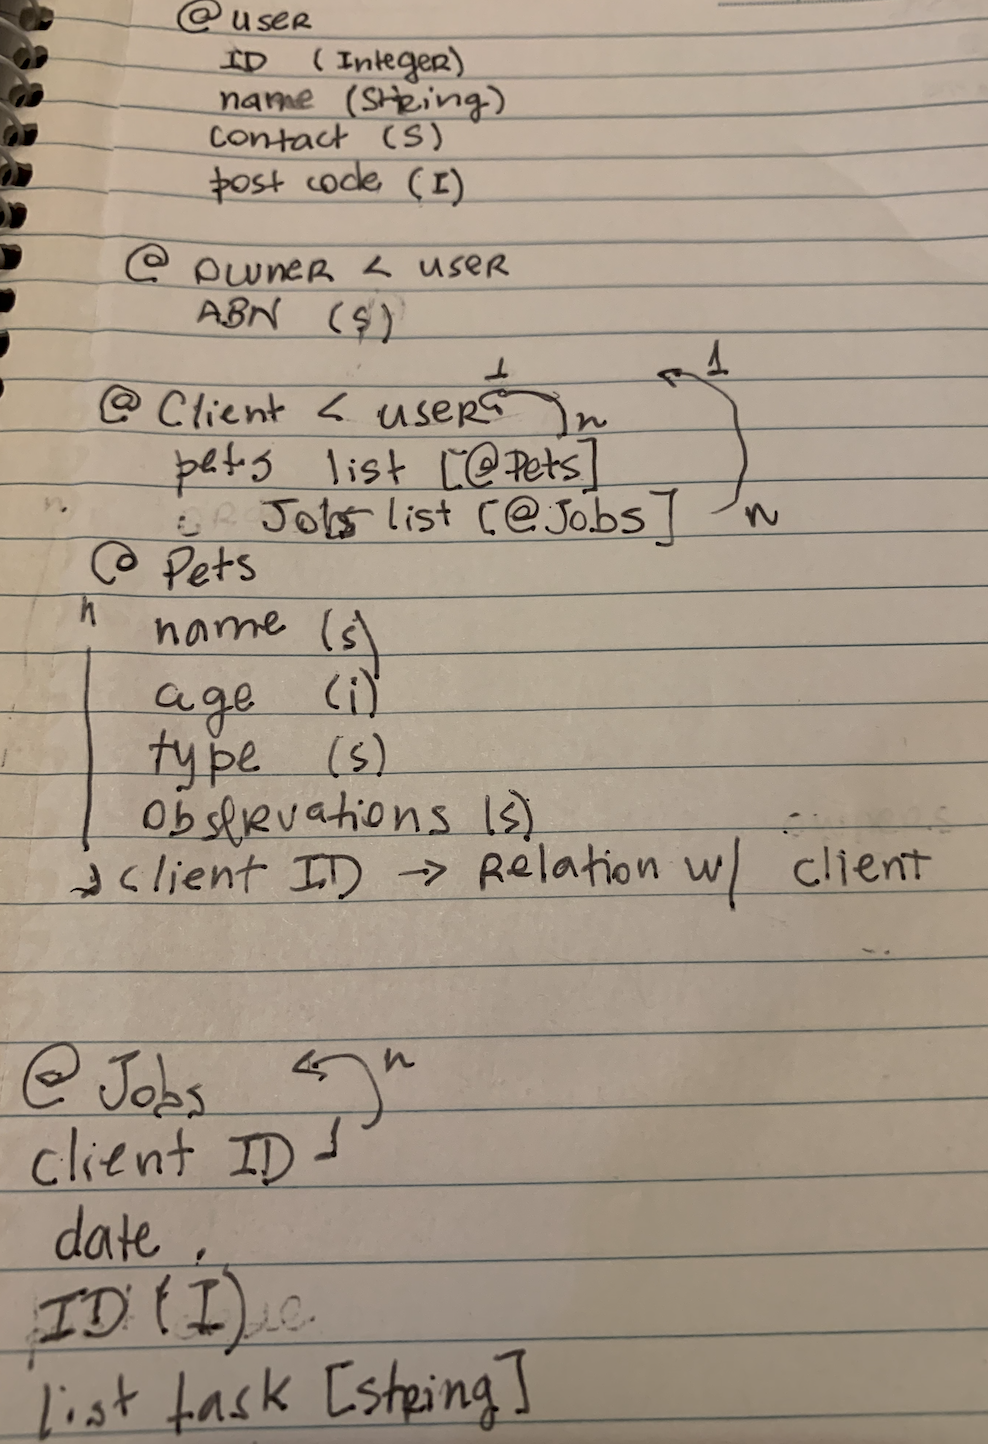 @ user
ID (Integer)
name (String)
contact (S)
post code (I)
@ owner < user
ABN (S)
1
1
@ Client < user
n
pets list [@Pets]
Jobs list [@Jobs] n
@ Pets
n
name (s)
age (i)
type (s)
observations (s)
client ID → Relation w/ client
@ Jobs n
client ID 1
date
ID (I)
list task [string]